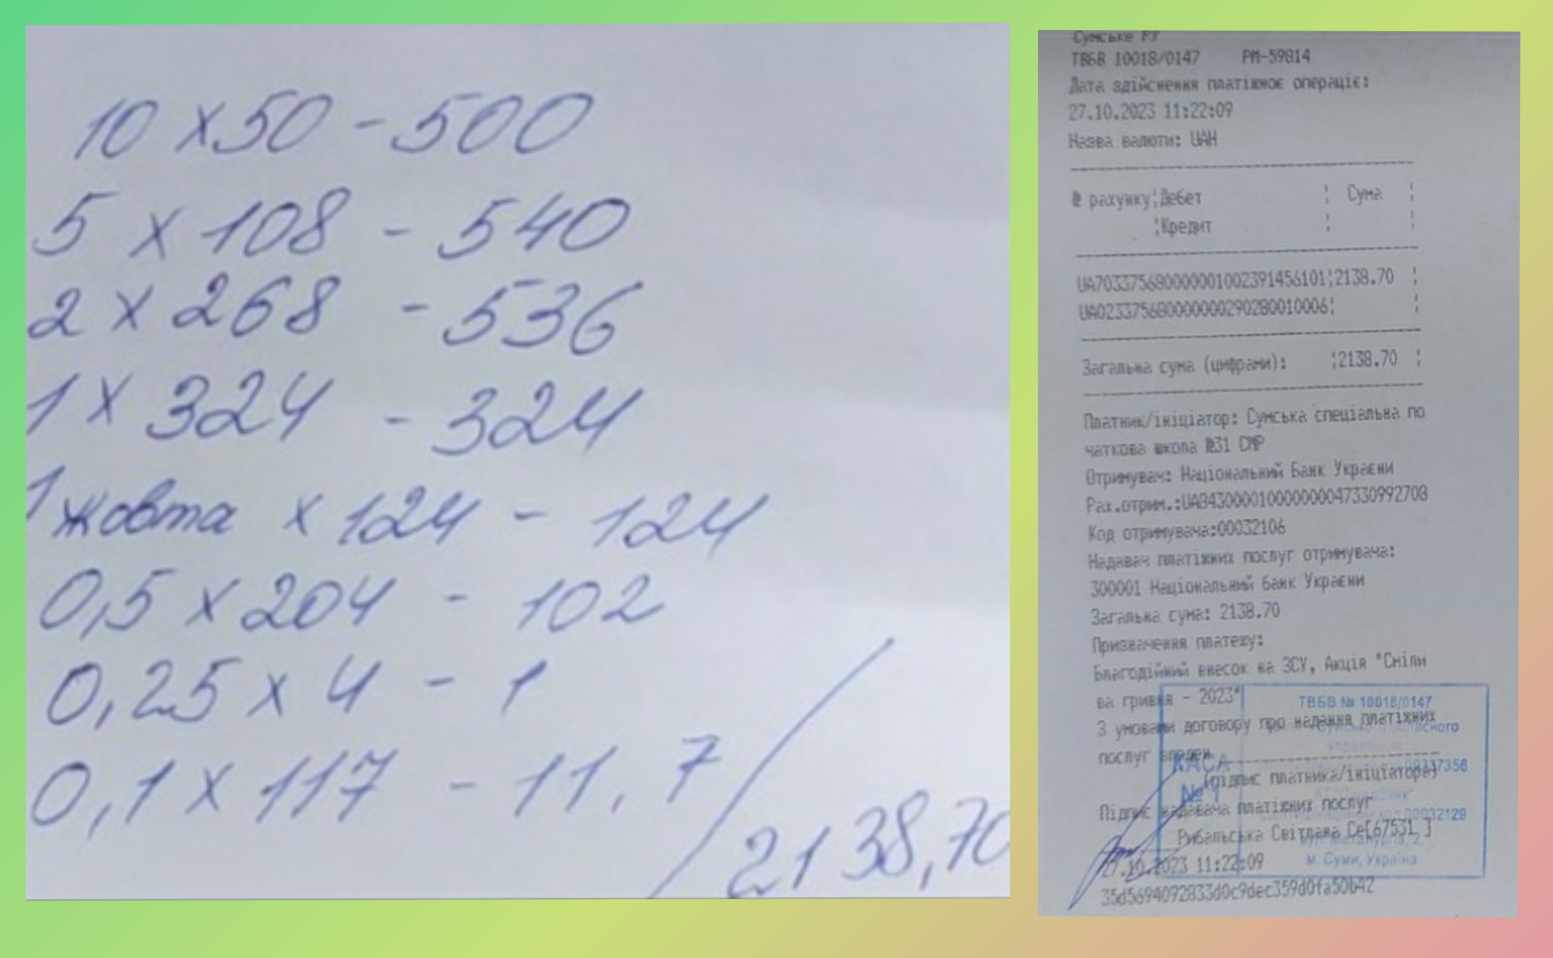 10 x 50 - 500
5 x 108 - 540
2 x 268 - 536
1 x 324 - 324
1 жовта x 124 - 124
0,5 x 204 - 102
0,25 x 4 - 1
0,1 x 117 - 11,7
2138,70
Сумське РУ
ТВБВ 10018/0147 РМ-59814
Дата здійснення платіжноє операціє:
27.10.2023 11:22:09
Назва валюти: UAH
№ рахунку¦Дебет ¦ Сума ¦
¦Кредит ¦ ¦
UA703375680000001002391456101¦2138.70 ¦
UA023375680000000290280010006¦ ¦
Загальна сума (цифрами): ¦2138.70 ¦
Платник/ініціатор: Сумська спеціальна по
чаткова школа №31 СМР
Отримувач: Національний Банк Украєни
Рах.отрим.:UA843000010000000047330992708
Код отримувача:00032106
Надавач платіжних послуг отримувача:
300001 Національний банк Украєни
Загальна сума: 2138.70
Призначення платежу:
Благодійний внесок на ЗСУ, Акція "Сміли
ва гривня - 2023"
З умовами договору про надання платіжних
послуг
(підпис платника/ініціатора)
Підпис надавача платіжних послуг
Рибальська Світлана Се[67531 ]
27.10.2023 11:22:09
35d5694092833d0c9dec359d0fa50b42
ТВБВ № 10018/0147
КАСА
№ 1
м. Суми, Україна